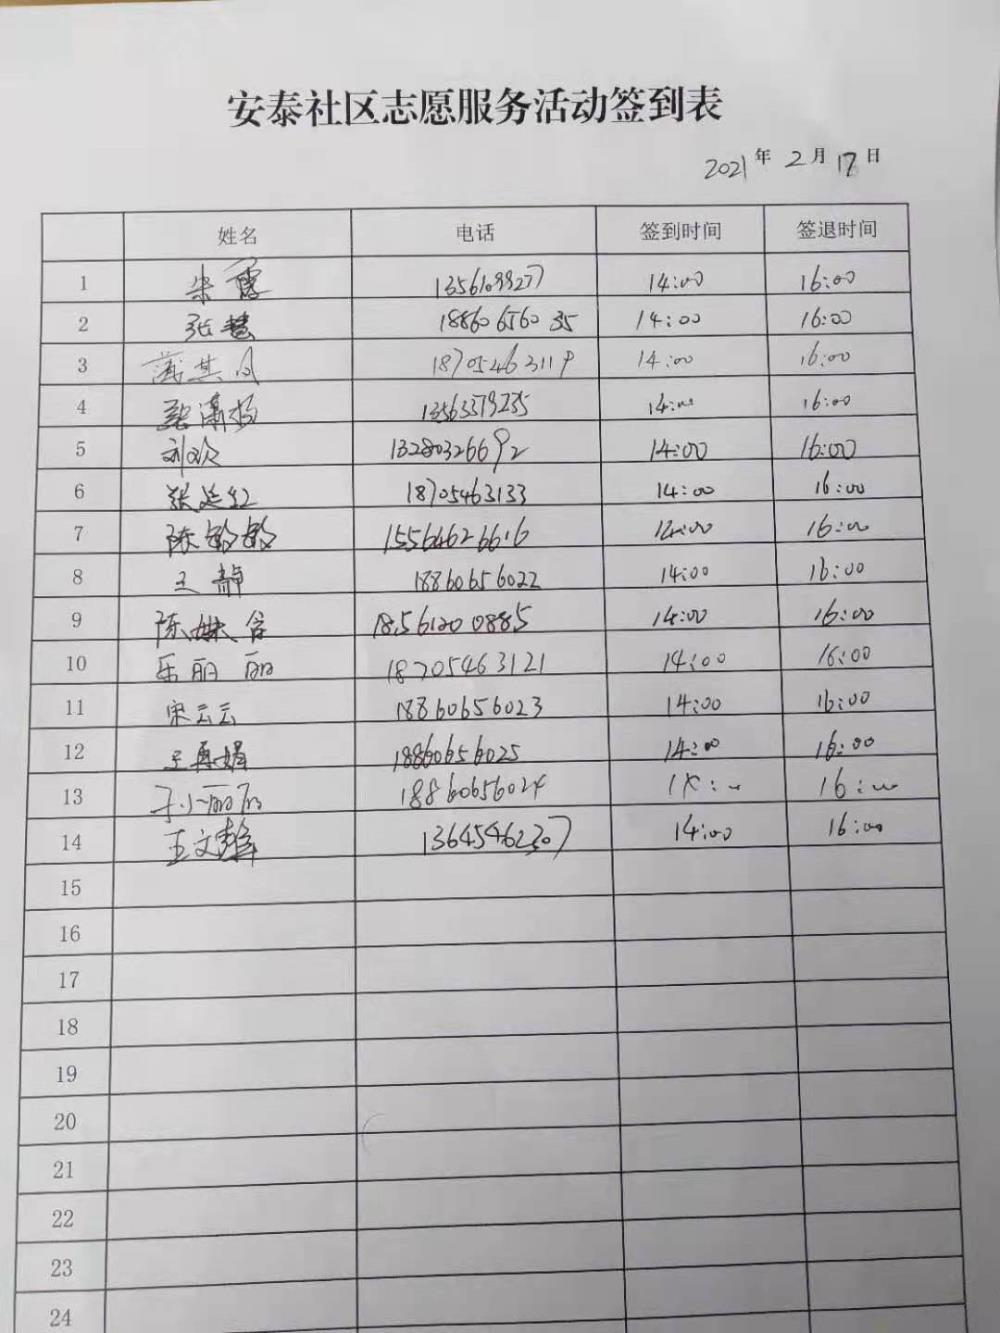 安泰社区志愿服务活动签到表
2021年 2月 17日
姓名 电话 签到时间 签退时间
1 朱霞 13561099277 14:00 16:00
2 张慧 18860656035 14:00 16:00
3 18705463119 14:00 16:00
4 13563379235 14:00 16:00
5 刘欢 13280326692 14:00 16:00
6 张廷红 18705463133 14:00 16:00
7 陈敏敏 15564626616 14:00 16:00
8 王静 18860656022 14:00 16:00
9 陈姝含 18561200885 14:00 16:00
10 乐丽丽 18705463121 14:00 16:00
11 宋云云 18860656023 14:00 16:00
12 王再娟 18860656025 14:00 16:00
13 于小丽 18860656024 14:00 16:00
14 王文 13645462307 14:00 16:00
15
16
17
18
19
20
21
22
23
24